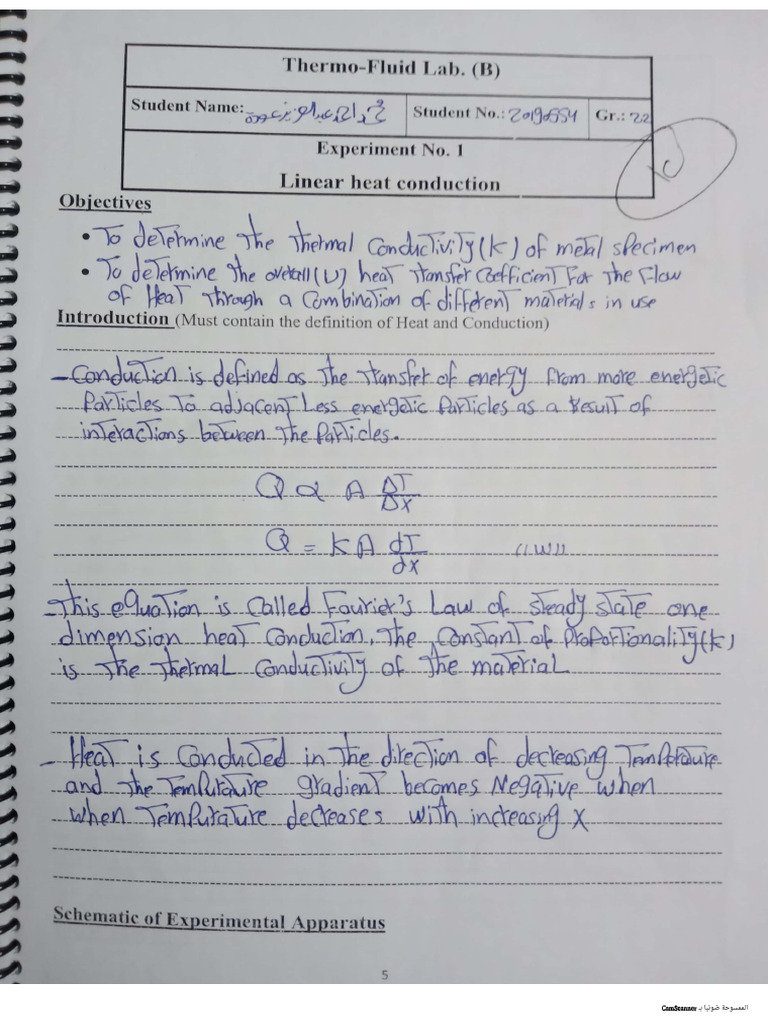 Thermo-Fluid Lab. (B)
Student Name:
Student No.: 20190554 Gr.: 22
Experiment No. 1
Linear heat conduction
Objectives
• To determine the thermal conductivity (K) of metal specimen
• To determine the overall (U) heat transfer coefficient for the flow
of Heat through a combination of different materials in use
Introduction (Must contain the definition of Heat and Conduction)
- Conduction is defined as the transfer of energy from more energetic
Particles to adjacent Less energetic Particles as a Result of
interactions between the Particles.
Q ∝ A ΔT/Δx
Q = K A dT/dx "W"
- This equation is called Fourier's Law of steady state one
dimension heat conduction, the constant of Proportionality (K)
is the thermal conductivity of the material
- Heat is conducted in the direction of decreasing Temperature
and the Tempurature gradient becomes Negative when
when Tempurature decreases with increasing X
Schematic of Experimental Apparatus
5
الممسوحة ضوئيا بـ CamScanner